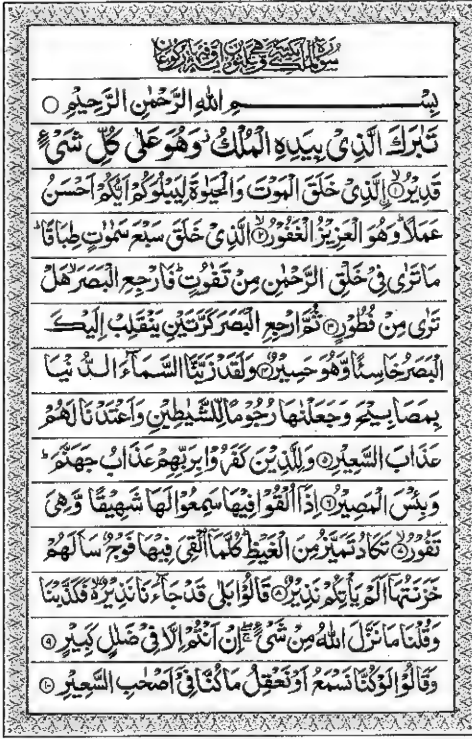 سُوْرَةُ الْمُلْكِ مَكِّيَّةٌ وَّهِيَ ثَلٰثُوْنَ اٰيَةً وَّفِيْهَا رُكُوْعَانِ
بِسْمِ اللهِ الرَّحْمٰنِ الرَّحِيْمِ ○
تَبٰرَكَ الَّذِىْ بِيَدِهِ الْمُلْكُ ؗ وَهُوَ عَلٰى كُلِّ شَىْءٍ
قَدِيْرُ ۨ ۙ ۱ الَّذِىْ خَلَقَ الْمَوْتَ وَالْحَيٰوةَ لِيَبْلُوَكُمْ اَيُّكُمْ اَحْسَنُ
عَمَلًا ؕ وَهُوَ الْعَزِيْزُ الْغَفُوْرُ ۙ ۲ الَّذِىْ خَلَقَ سَبْعَ سَمٰوٰتٍ طِبَاقًا ؕ
مَا تَرٰى فِىْ خَلْقِ الرَّحْمٰنِ مِنْ تَفٰوُتٍ ؕ فَارْجِعِ الْبَصَرَ ۙ هَلْ
تَرٰى مِنْ فُطُوْرٍ ۳ ثُمَّ ارْجِعِ الْبَصَرَ كَرَّتَيْنِ يَنْقَلِبْ اِلَيْكَ
الْبَصَرُ خَاسِئًا وَّهُوَ حَسِيْرٌ ۴ وَلَقَدْ زَيَّنَّا السَّمَآءَ الدُّنْيَا
بِمَصَابِيْحَ وَجَعَلْنٰهَا رُجُوْمًا لِّلشَّيٰطِيْنِ وَاَعْتَدْنَا لَهُمْ
عَذَابَ السَّعِيْرِ ۵ وَلِلَّذِيْنَ كَفَرُوْا بِرَبِّهِمْ عَذَابُ جَهَنَّمَ ؕ
وَبِئْسَ الْمَصِيْرُ ۶ اِذَآ اُلْقُوْا فِيْهَا سَمِعُوْا لَهَا شَهِيْقًا وَّهِىَ
تَفُوْرُ ۙ ۷ تَكَادُ تَمَيَّزُ مِنَ الْغَيْظِ ؕ كُلَّمَآ اُلْقِىَ فِيْهَا فَوْجٌ سَاَلَهُمْ
خَزَنَتُهَآ اَلَمْ يَاْتِكُمْ نَذِيْرٌ ۸ قَالُوْا بَلٰى قَدْ جَآءَنَا نَذِيْرٌ ۙ فَكَذَّبْنَا
وَقُلْنَا مَا نَزَّلَ اللّٰهُ مِنْ شَىْءٍ ۖۚ اِنْ اَنْتُمْ اِلَّا فِىْ ضَلٰلٍ كَبِيْرٍ ۹
وَقَالُوْا لَوْ كُنَّا نَسْمَعُ اَوْ نَعْقِلُ مَا كُنَّا فِىْٓ اَصْحٰبِ السَّعِيْرِ ۱۰